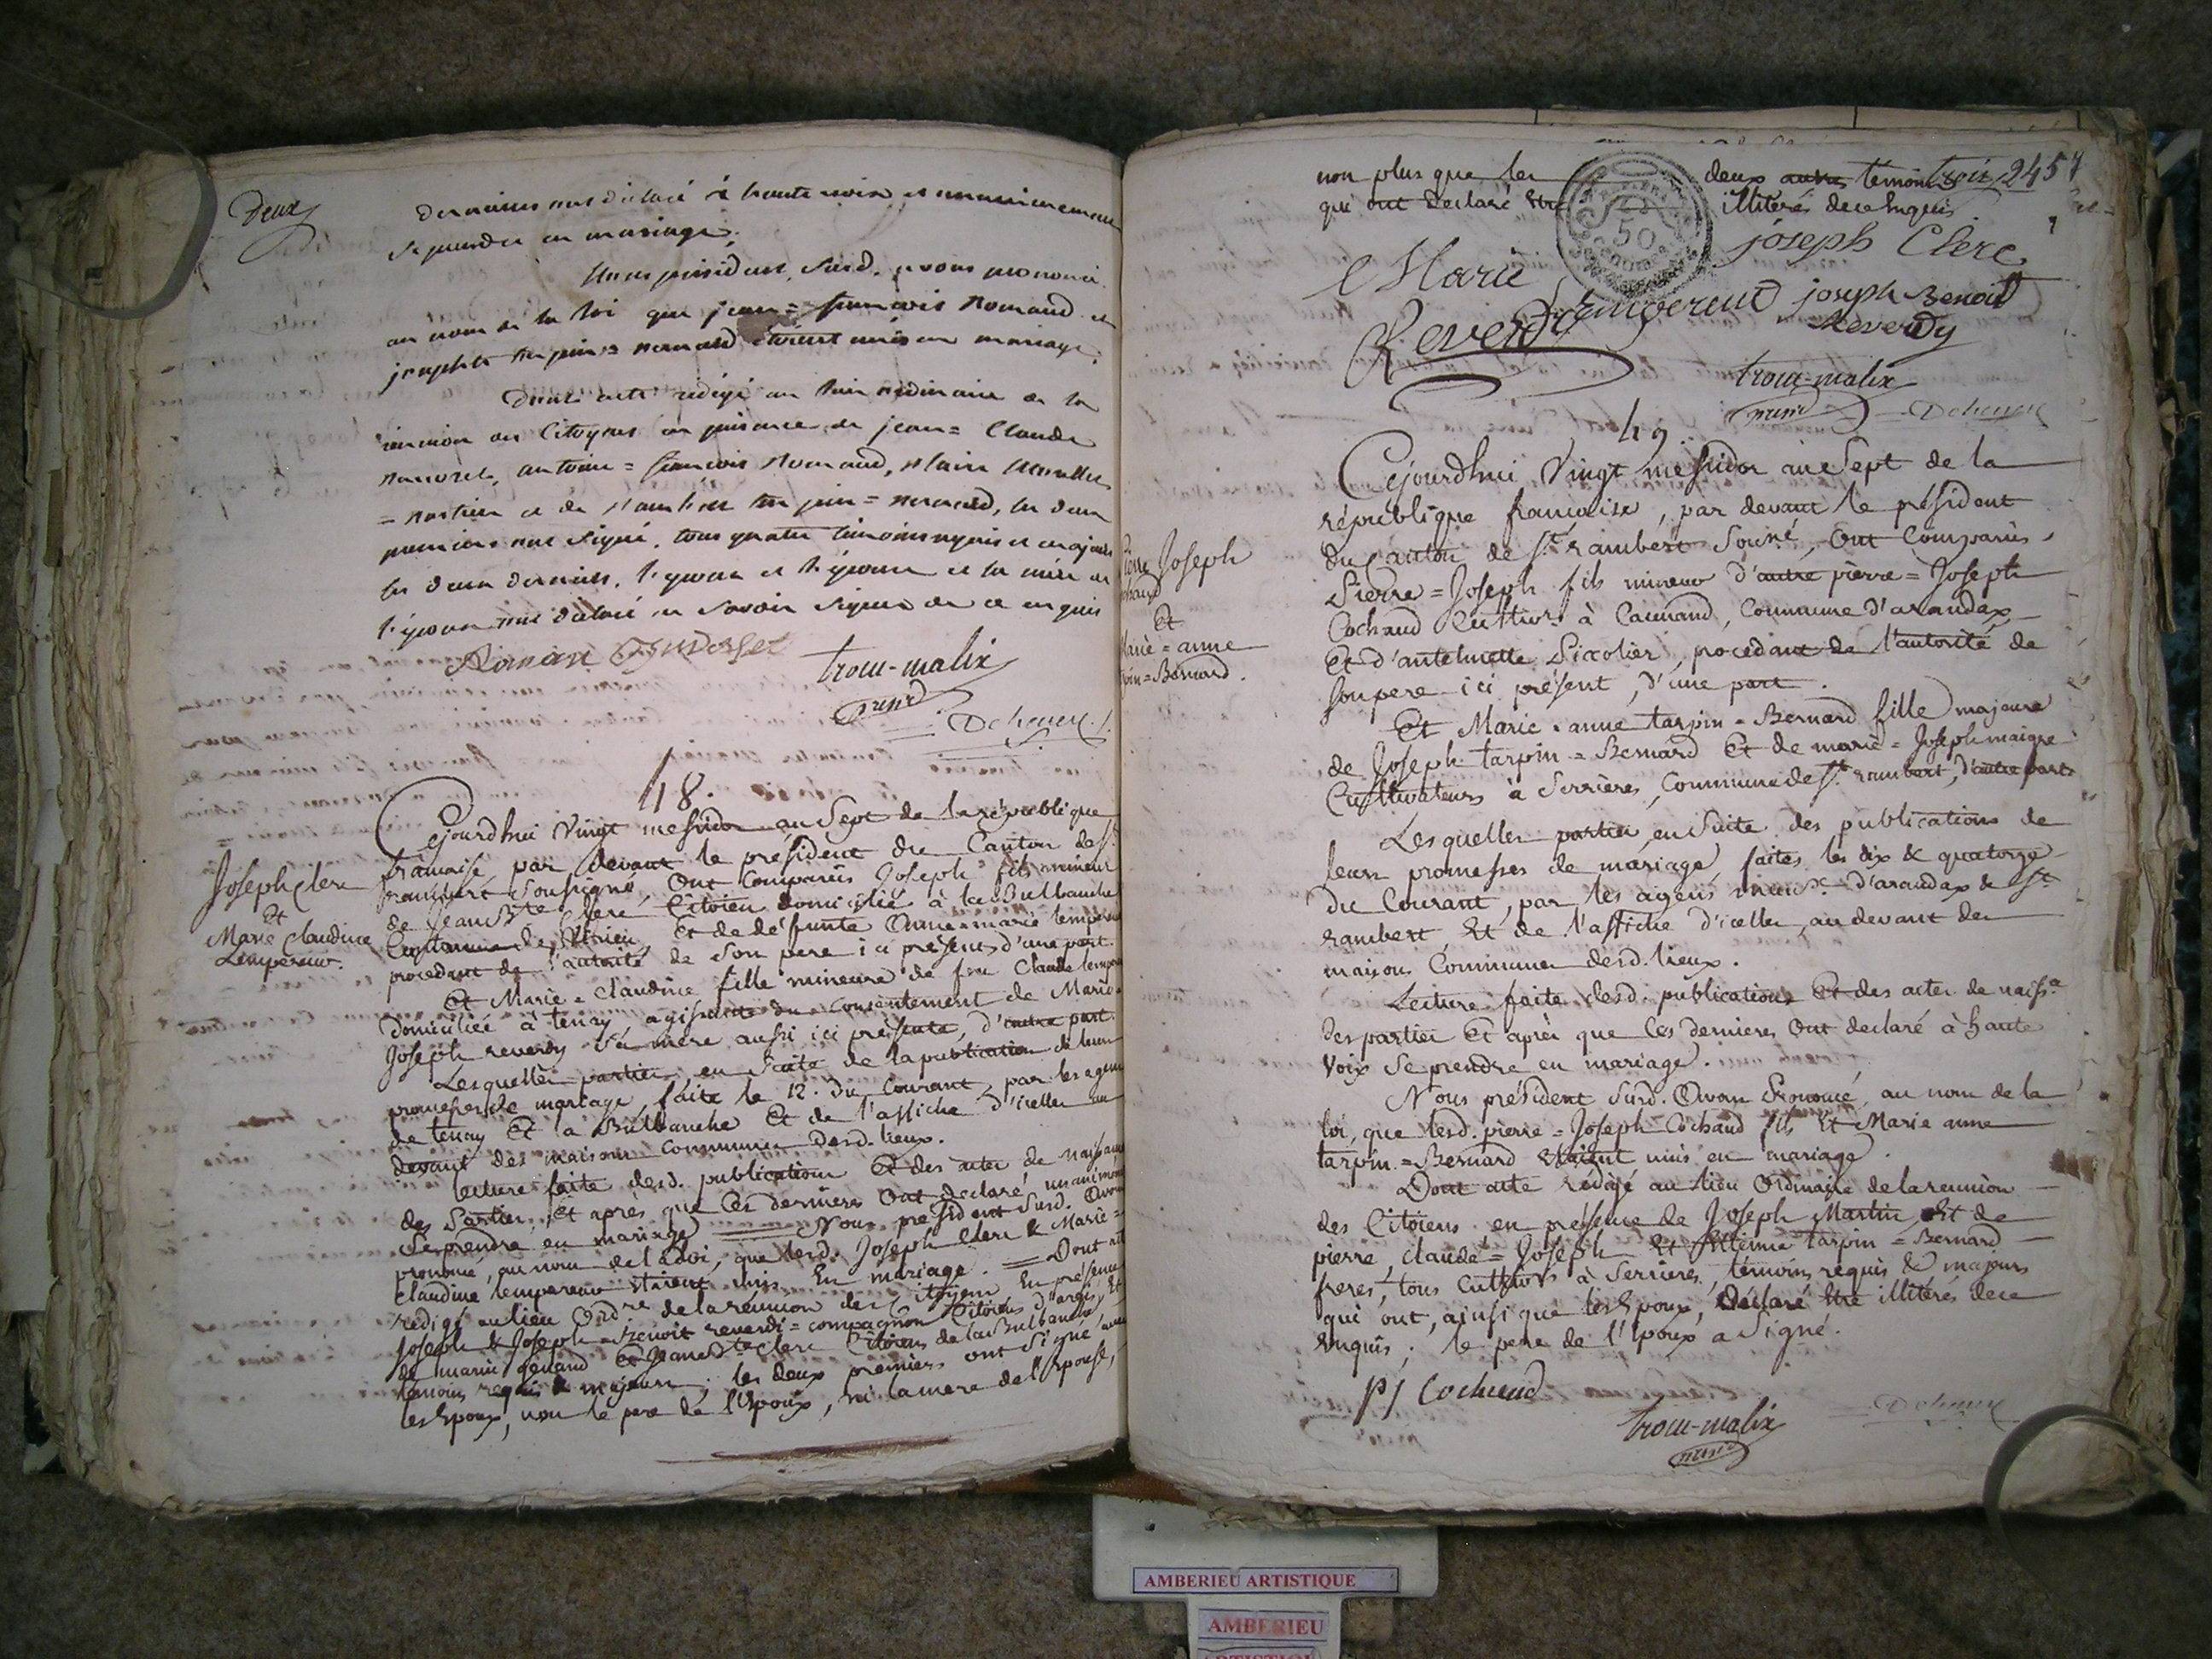 Deux
derniers ont déclaré à haute voix et unanimement
se prendre en mariage.
Nous président susd. avons prononcé
au nom de la loi que jean = françois Romand et
josephte tarpin = Bernard étoient unis en mariage.
Dont acte rédigé au lieu ordinaire de la
réunion des Citoyens en présence de jean = Claude
antoine = françois Romand,
tarpin = Bernard, les deux
premiers ont signé, tous quatre témoins requis et majeurs
les deux derniers, l'époux et l'épouse et la mère de
l'époux ont déclaré ne savoir signer de ce enquis
trocu-malix
présid
Dchenere
48.
Joseph Clerc
Et
Marie Claudine
Lempereur.
Cejourdhui Vingt messidor an Sept de la république
francaise, par devant le président du Canton de St.
rambert Soussigné, Ont Comparus Joseph fils mineur
de Jean Bte. Clerc Citoien domicilié à la Bulbanche
Et de défunte Anne = marie lempereur
procedant de l'autorité de Son pere ici présent, d'une part.
Et Marie = Claudine fille mineure de feu Claude lempereur
domiciliée à tenay, agissante du Consentement de Marie =
Joseph reverdy Sa mere aussi ici présente, d'autre part.
Lesquelles parties en Suite de la publication de leurs
promesses de mariage, faite le 12. du Courant, par les agens
de tenay Et la Bulbanche Et de l'affiche d'icelles au
devant des maisons Communes desd. lieux.
Lecture faite desd. publications Et des actes de naissance
des Parties, Et après que Ces derniers Ont declaré unanimement
Se prendre en mariage Nous président Susd. Avons
prononcé, au nom de la Loi, que lesd. Joseph Clerc & Marie =
Claudine lempereur étaient unis En mariage. = Dont acte
redigé au lieu Ordre. de la réunion des Citoyens En présence
Joseph & Joseph = Benoit reverdi = compagnon Citoiens d'argis, Et
de marin genand Et Jean Bte Clerc Citoiens de la Bulbanche,
témoins requis & majeurs; les deux premiers ont Signé avec
les Epoux, non le pere de l'Epoux, ni la mere de l'Epouse,
non plus que les deux autres témoins trois 2457
qui ont declaré être illitérés de ce Enquis.
joseph Clerc
Marie
Lempereur joseph Benoit
Reverdy
Reverdy
trocu-malix
présid
Dchenere
49.
Pierre Joseph
Cochaud
Et
Marie = anne
tarpin = Bernard.
Cejourdhui Vingt messidor an Sept de la
république francaise, par devant le président
du Canton de St. rambert Sousné, Ont Comparus
Pierre = Joseph fils mineur d'autre pierre = Joseph
Cochaud Cultivr. à Caunand, Commune d'arandax
Et d'antelmette Sixolier, procedant de l'autorité de
Son pere ici présent, d'une part.
Et Marie = anne tarpin = Bernard fille majeure
de Joseph tarpin = Bernard Et de marie = Joseph maigre
Cultivateurs à Serrières, Commune de St. rambert, d'autre part
Lesquelles parties, en Suite des publications de
leurs promesses de mariage, faites les dix & quatorze
du Courant, par les agens muni. d'arandax & St.
rambert, Et de l'affiche d'icelles, au devant des
maisons Communes desd. lieux.
Lecture faite desd. publications Et des actes de naisse.
des parties Et après que Ces derniers Ont declaré à haute
Voix Se prendre en mariage.
Nous président Susd. Avons Prononcé, au nom de la
loi, que lesd. pierre = Joseph Cochaud fils Et Marie anne
tarpin = Bernard étaient unis en mariage.
Dont acte rédigé au lieu Ordinaire de la reunion
des Citoiens en présence de Joseph Martin, Et de
pierre, Claude = Joseph Et Etienne tarpin = Bernard
freres, tous Cultivrs à Serrieres, témoins requis & majeurs
qui ont, ainsi que les Epoux, déclaré être illitérés de ce
Enquis; le pere de l'Epoux a Signé.
pj Cochaud
trocu-malix
présid
Dchenere
AMBERIEU ARTISTIQUE
AMBERIEU
ARTISTIQUE